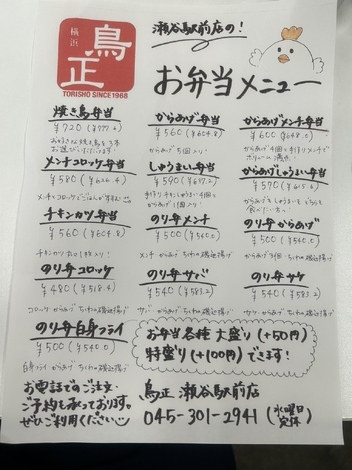 横浜
鳥正
TORISHO SINCE 1968
瀬谷駅前店の!
お弁当メニュー
焼き鳥弁当
¥720(¥777.6)
お好きな焼き鳥を3本
お選びいただけます!
からあげ弁当
¥560(¥604.8)
からあげ5個入り!
からあげメンチ弁当
¥600(¥648.0)
からあげ4個と手作りメンチで
ボリューム満点!
メンチコロッケ弁当
¥580(¥626.4)
メンチとコロッケで
しゅうまい弁当
¥590(¥637.2)
手作りしゅうまい4個と
からあげ1個入り!
からあげしゅうまい弁当
¥570(¥615.6)
からあげもしゅうまいもどちらも
食べたい方へ!
チキンカツ弁当
¥560(¥604.8)
チキンカツ
のり弁メンチ
¥500(¥540.0)
メンチ からあげ ちくわの磯辺揚げ
のり弁からあげ
¥500(¥540.0)
からあげ ちくわの磯辺揚げ
のり弁コロッケ
¥480(¥518.4)
コロッケ からあげ ちくわの磯辺揚げ
のり弁サバ
¥540(¥583.2)
サバ からあげ ちくわの磯辺揚げ
のり弁サケ
¥540(¥583.2)
サケ からあげ ちくわの磯辺揚げ
のり弁白身フライ
¥500(¥540.0)
白身フライ からあげ ちくわの磯辺揚げ
お弁当各種 大盛り(+50円)
特盛り(+100円)できます!
お電話でのご注文・
ご予約も承っております。
ぜひご利用ください
鳥正 瀬谷駅前店
045-301-2941(水曜日定休)